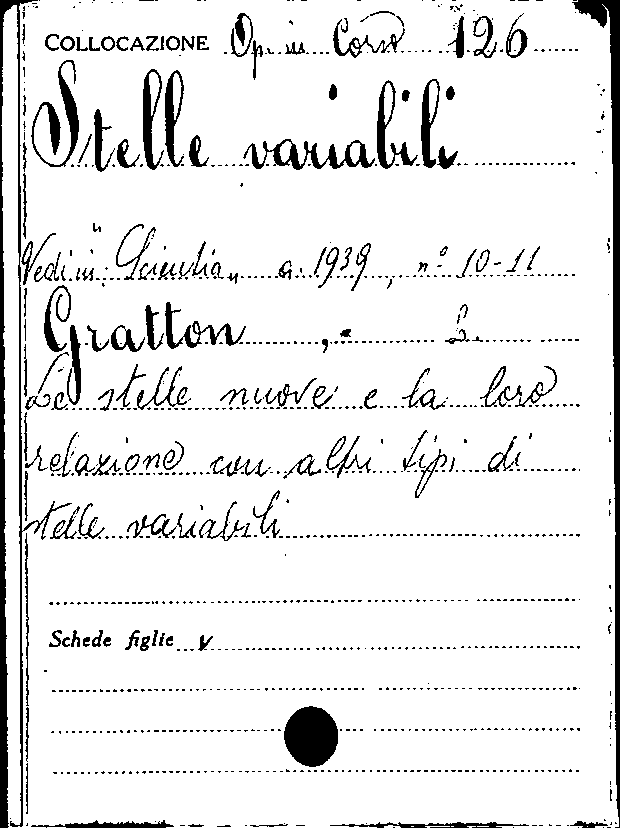 COLLOCAZIONE Op. in Corso 126
Stelle variabili
Vedi in "Scientia„ a. 1939, n° 10-11
Gratton, - L.
Le stelle nuove e la loro
relazione con altri tipi di
stelle variabili
Schede figlie v